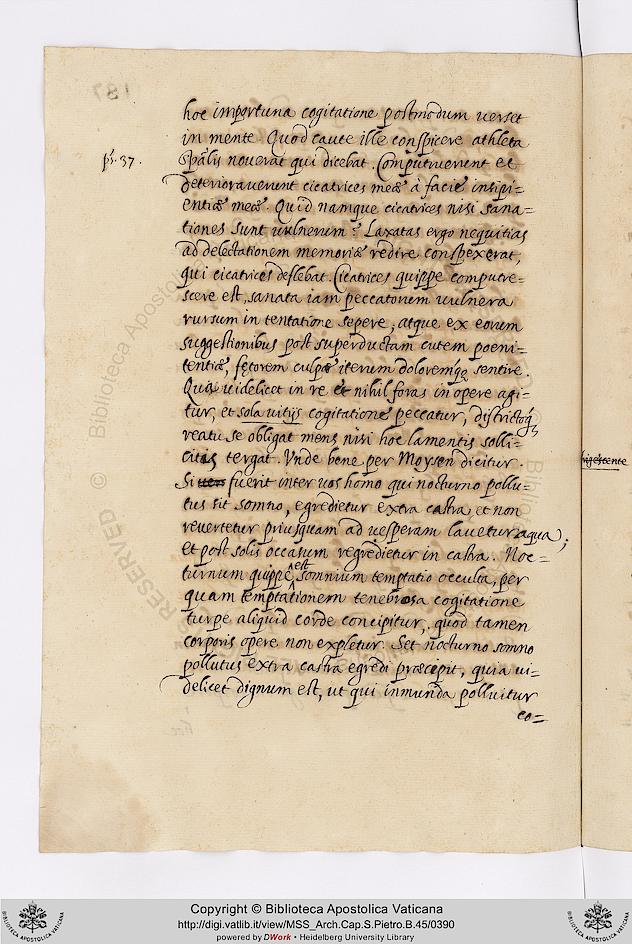 hoc importuna cogitatione postmodum verset
in mente. Quod caute ille conspicere athleta
ps. 37.
spalis noverat qui dicebat. Computruerunt et
deterioraverunt cicatrices meæ à facie insipi=
entiæ meæ. Quid namque cicatrices nisi sana=
tiones sunt vulnerum? Laxatas ergo nequitias
ad delectationem memoriæ redire conspexerat,
qui cicatrices deflebat. Cicatrices quippe computre=
scere est, sanata iam peccatorum vulnera
rursum in tentatione sepere, atque ex eorum
suggestionibus post superductam cutem poeni=
tentiæ, fętorem culpæ iterum doloremq; sentire.
videlicet in re et nihil foras in opere agi=
tur, et sola vitijs cogitatione peccatur,
reatu se obligat mens nisi hoc lamentis solli=
citis tergat. Vnde bene per Moysen dicitur.
Si fuerit inter vos homo qui nocturno pollu=
tus sit somno, egredietur extra castra et non
revertetur priusquam ad vesperam lavetur aqua;
et post solis occasum regredietur in castra. Noc=
turnum quippe est somnium temptatio occulta, per
quam temptationem tenebrosa cogitatione
turpe aliquid corde concipitur, quod tamen
corporis opere non expletur. Set nocturno somno
pollutus extra castra egredi præcepit, quia vi=
delicet dignum est, ut qui inmunda polluitur
co=
187
© Biblioteca Apostolica
RESERVED
Copyright © Biblioteca Apostolica Vaticana
http://digi.vatlib.it/view/MSS_Arch.Cap.S.Pietro.B.45/0390
powered by DWork • Heidelberg University Library